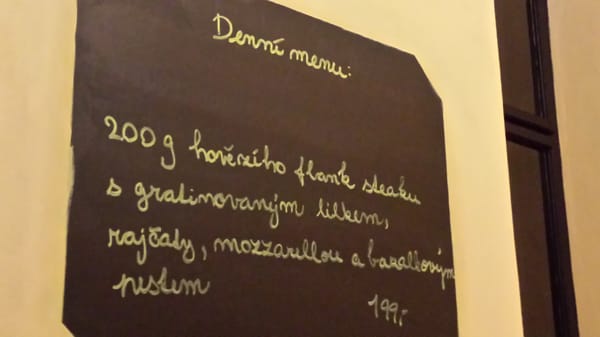 Denní menu:
200g hovězího flank steaku
s gratinovaným lilkem,
rajčaty, mozzarellou a bazalkovým
pestem
199,-